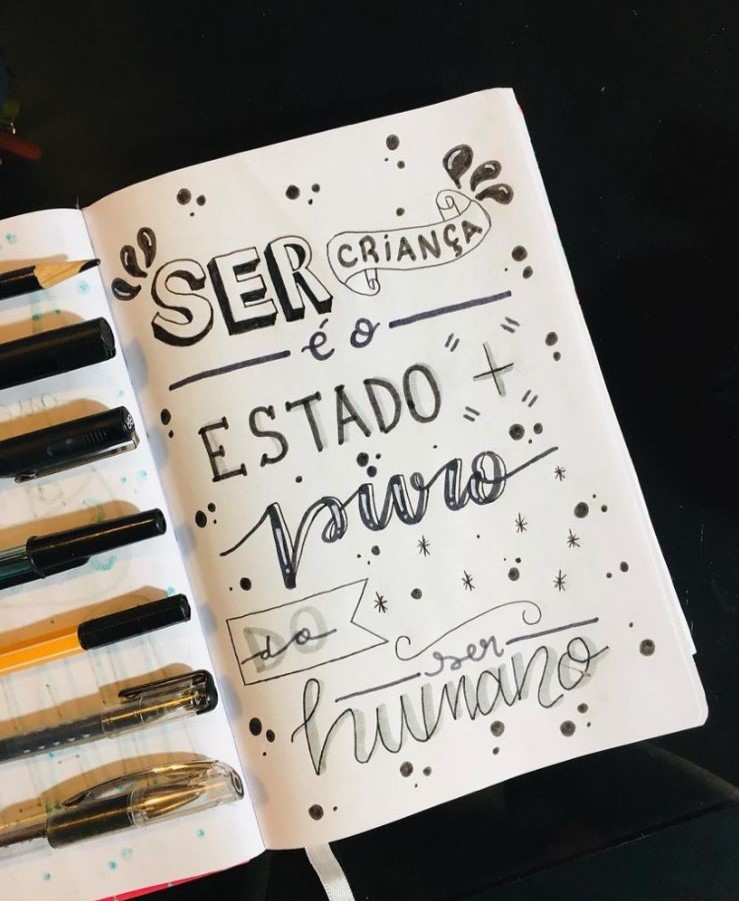 SER CRiANÇA
é o
ESTADO +
puro
do
ser
humano